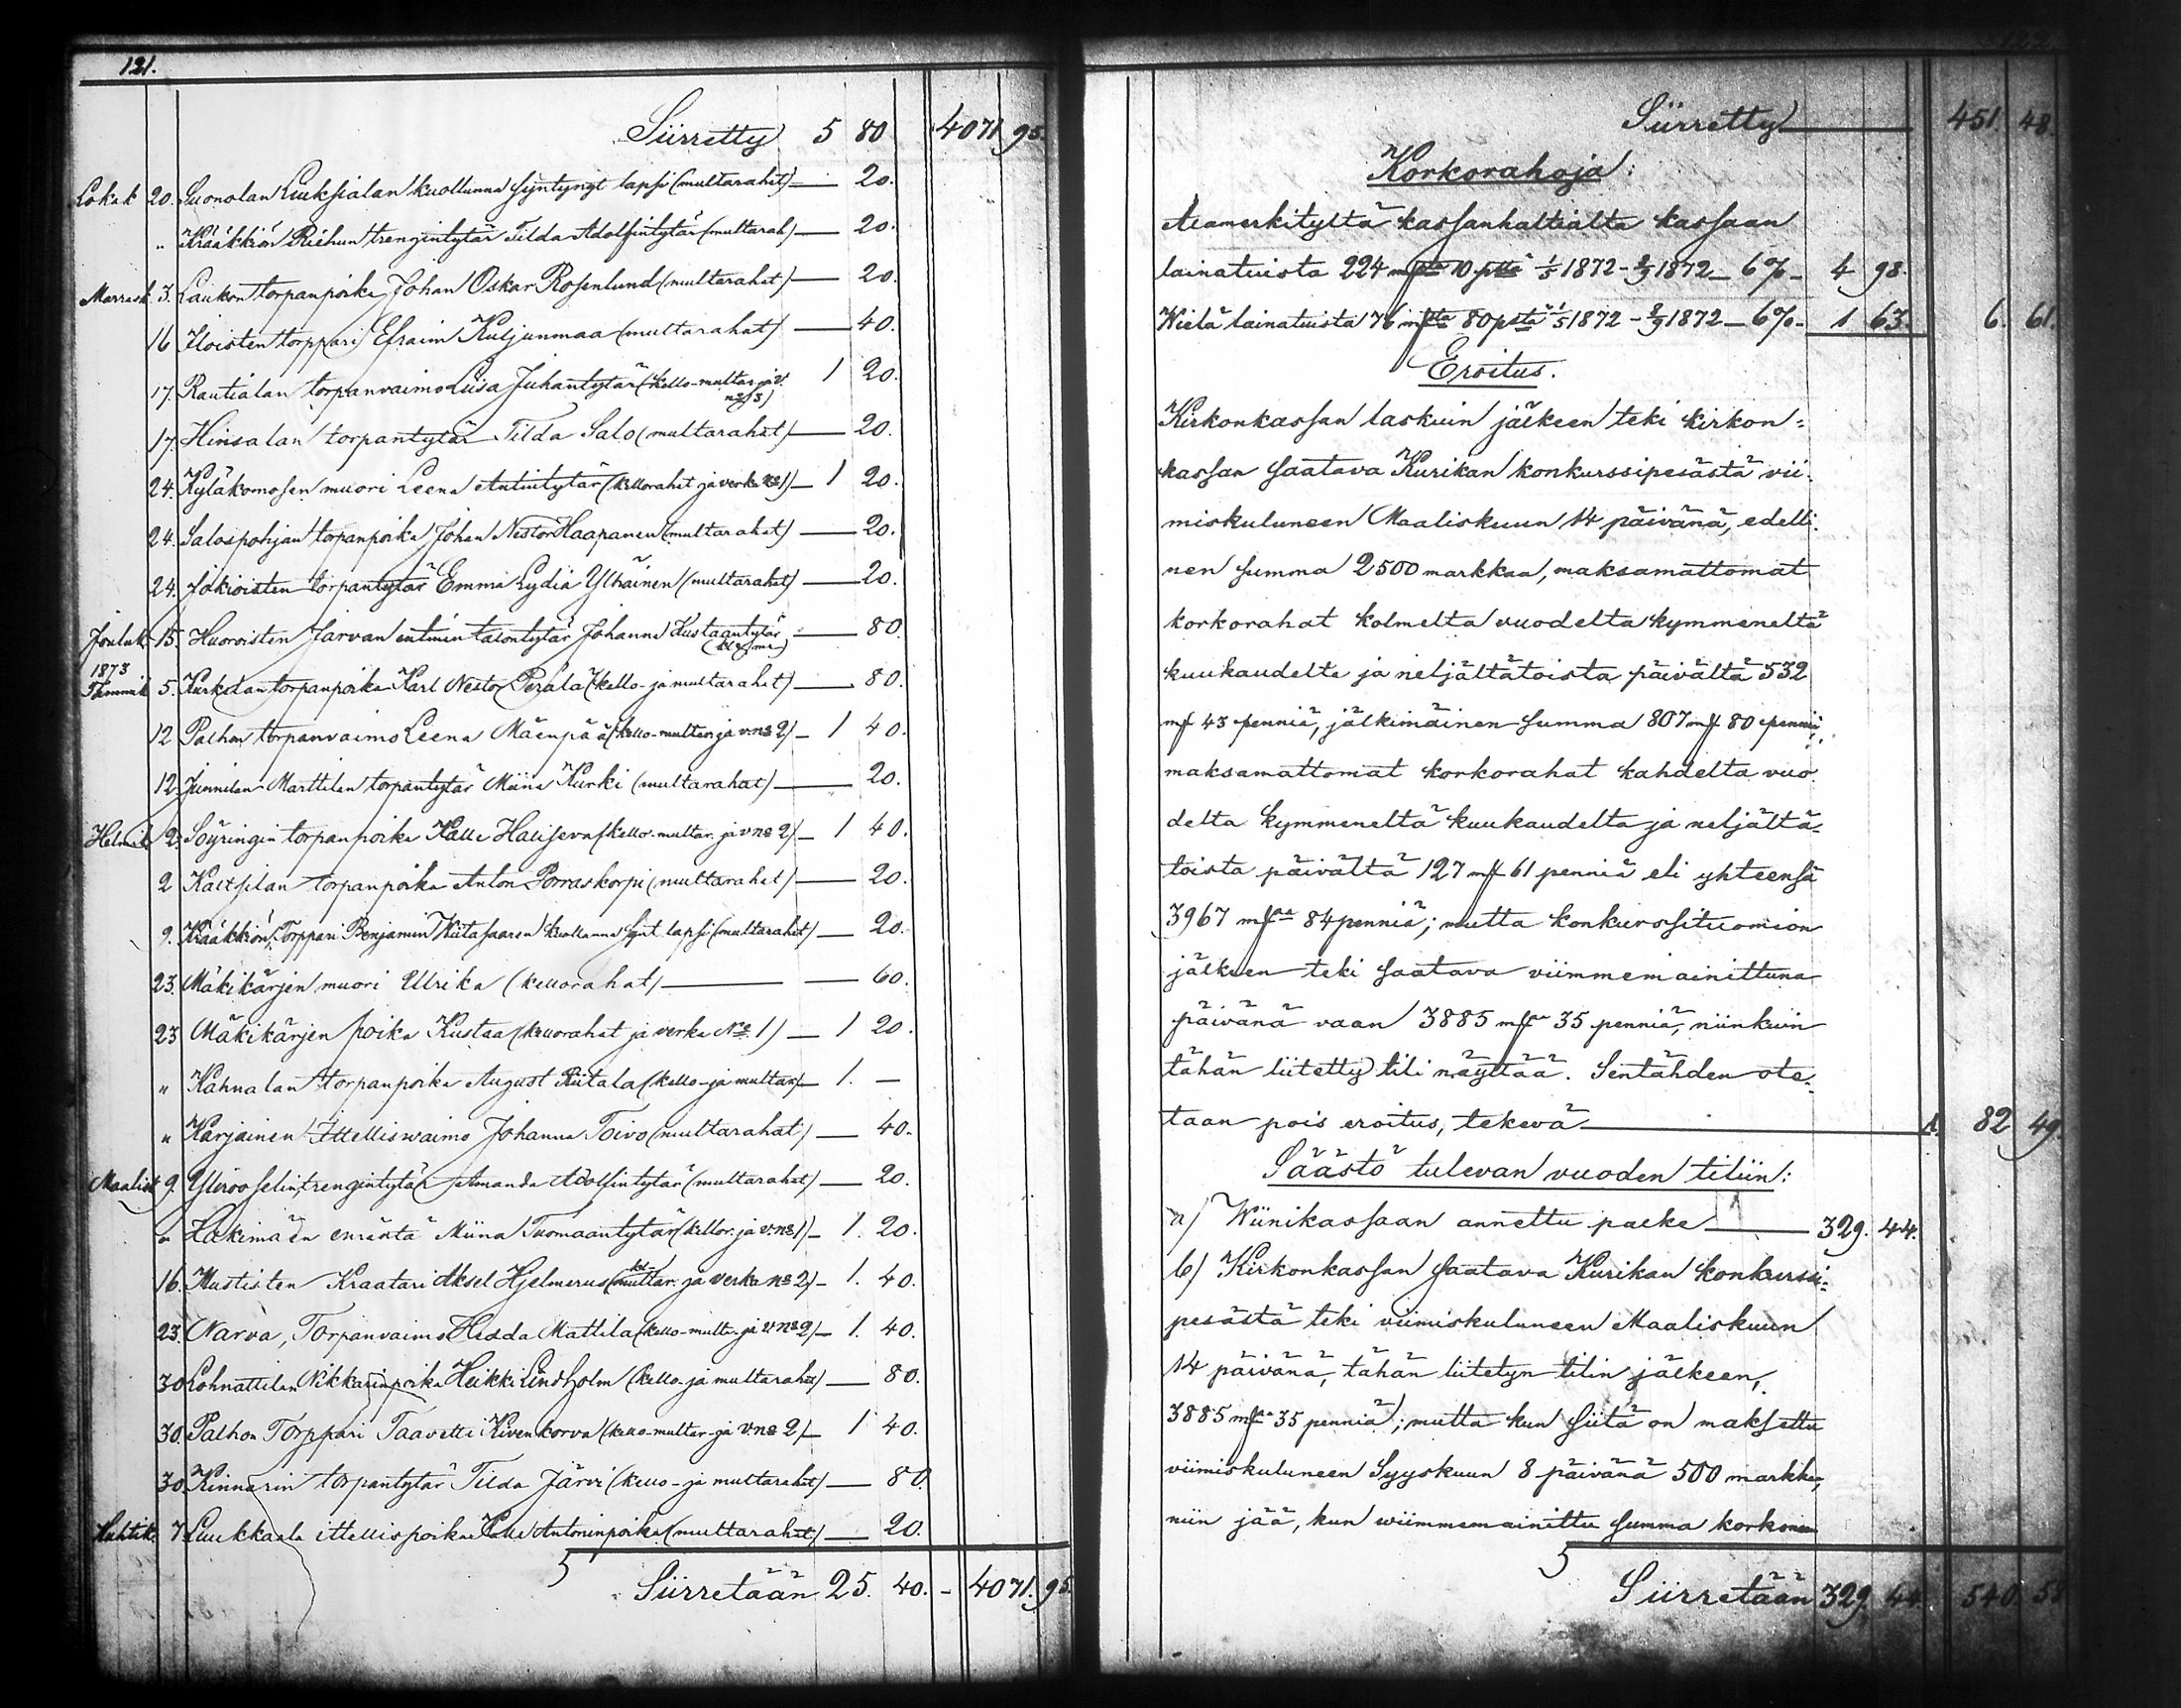 121.
Siirretty 5 80 4071 95.
Lokak 20. Suonolan Liuksialan kuollunna syntynyt lapsi (multarahat) — 20.
" Krääkkiön Riehun trengintytär Tilda Adolfintytär (multarah) — 20.
Marrask. 3. Laukon torpanpoika Johan Oskar Rosenlund (multarahat) — 20.
16 Iloisten torppari Efraim Kuljunmaa (multarahat) — 40.
17. Rautialan torpanvaimo Liisa Juhantytär (kello-multar. ja v. 1 20.
no 3)
17. Hinsalan torpantytär Tilda Salo (multarahat) — 20.
24. Kyläkomosen muori Leena Antintytär (kellorahat ja verka No 1) — 1 20.
24. Salospohjan torpanpoika Johan Nestor Haapanen (multarahat) — 20.
24. Jokioisten torpantytär Emma Lydia Ylhäinen (multarahat) — 20.
Jouluk. 15. Huoroisten Jarvan entinen talontytär Johanna Kustaantytär — 80.
1873
Tammik 5. Kurkelan torpanpoika Karl Nestor Perälä (kello- ja multarahat) — 80.
12 Palhon torpanvaimo Leena Mäenpää (kello-multar. ja v. no 2) — 1 40.
12 Junnilan Marttilan torpantytär Miina Kurki (multarahat) — 20.
Helmik 2. Söyringin torpanpoika Kalle Haliseva (kello-multar. ja v no 2) — 1 40.
2 Kaltsilan torpanpoika Anton Porraskorpi (multarahat) — 20.
9. Krääkkiön Torppari Benjamin Kiitasaaren kuollunna synt. lapsi (multarahat) — 20.
23. Mäkikärjen muori Ulrika (kellorahat) — 60.
23 Mäkikärjen poika Kustaa (kellorahat ja verka No 1) — 1 20.
" Kahnalan torpanpoika August Riitala (kello- ja multar) — 1. —
" Karjainen Ittelliswaimo Johanna Toivo (multarahat) — 40.
Maalisk 9. trengintytär Amanda Adolfintytär (multarahat) — 20.
" Lakimäen emäntä Miina Tuomaantytär (kellor. ja v. no 1) — 1. 20.
16. Mustisten Kraatari Aksel Hjelmerus (kel- multar. ja verka no 2) — 1. 40.
23. Narva, Torpanvaimo Hedda Mattila (kello-multr. ja v no 2) — 1. 40.
30 Lohnattilan Nikkarinpoika Heikki Lindholm (kello- ja multarahat) — 80.
30. Palhon Torppari Taavetti Kivenkorva (kello-multar- ja v no 2) — 1 40.
30. Kinnarin torpantytär Tilda Järvi (kello- ja multarahat) — 80.
Huhtik. 7 Luukkaala ittellispoika Kalle Antoninpoika (multarahat) — 20.
Siirretään 25. 40. - 4071. 95.
122.
Siirretty — 451. 48.
Korkorahoja:
Alamerkityltä kassanhaltialta kassaan
lainatuista 224 mfta 10 pltä 1/5 1872 - 8/9 1872 — 6% — 4 98.
Wielä lainatuista 76 mfta 80 psta 1/5 1872 - 8/9 1872 — 6% — 1 63. 6. 61.
Eroitus.
Kirkonkassan laskuin jälkeen teki kirkon-
kassan saatava Kurikan konkurssipesästä vii-
miskuluneen Maaliskuun 14 päivänä, edelli-
nen summa 2500 markkaa, maksamattomat
korkorahat kolmelta vuodelta kymmeneltä
kuukaudelta ja neljältätoista päivältä 532
mf 43 penniä, jälkimäinen summa 807 mf 80 penniä;
maksamattomat korkorahat kahdelta vuo-
delta kymmeneltä kuukaudelta ja neljältä-
toista päivältä 127 mf 61 penniä eli yhteensä
3967 mfaa 84 penniä; mutta konkurssituomion
jälkeen teki saatava viimmemainittuna
päivänä vaan 3885 mfaa 35 penniä, niinkuin
tähän liitetty tili näyttää. Sentähden ote-
taan pois eroitus, tekevä — 82 49.
Säästö tulevan vuoden tiliin:
a) Wiinikassaan annettu palke — 329. 44.
b) Kirkonkassan saatava Kurikan konkurssi-
pesästä teki viimiskuluneen Maaliskuun
14 päivänä, tähän liitetyn tilin jälkeen,
3885 mfaa 35 penniä; mutta kun siitä on maksettu
viimiskuluneen Syyskuun 8 päivänä 500 markkaa,
niin jää, kun wiimmemainittu summa korkonen
Siirretään 329. 44. 540. 58